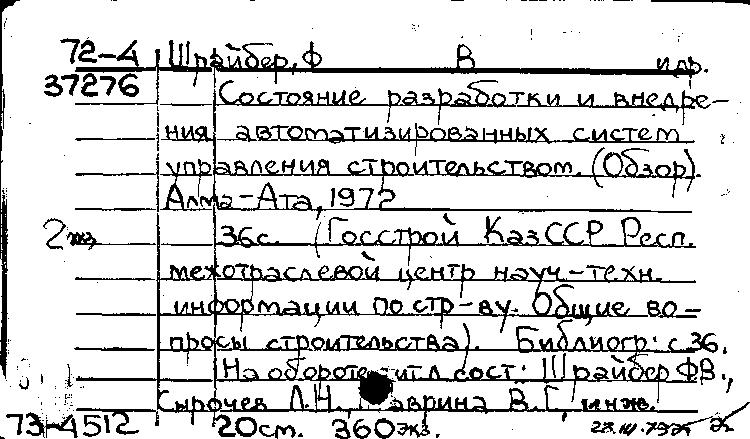 72-4 Шрайбер, Ф В и др.
37276 Состояние разработки и внедре-
ния автоматизированных систем
управления строительством. (Обзор).
Алма-Ата, 1972
2 экз 36с. (Госстрой КазССР Респ.
межотраслевой центр науч.-техн.
информации по стр-ву. Общие во-
просы строительства). Библиогр: с 36.
На обороте тит. л. сост: Шрайбер Ф.В.,
Сырочев Л.Н., Гаврина В.Г., инж.
73-4512 20см. 360 экз.